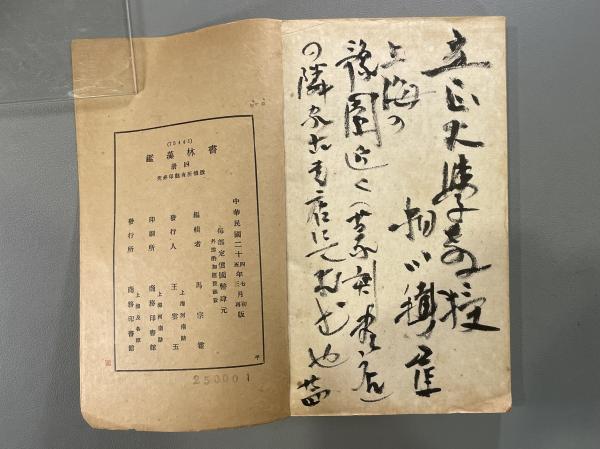 立正大學教授
相川鐵崖
上海の
豫園近く
の隣家古書店にて
書林藻鑑
四册
版權所有翻印必究
中華民國二十四年七月初版
五年三月再版
每部定價國幣肆元
外埠酌加運費匯費
編輯者 馬宗霍
上海河南路
發行人 王雲五
上海河南路
印刷所 商務印書館
上海及各埠
發行所 商務印書館
平
250001